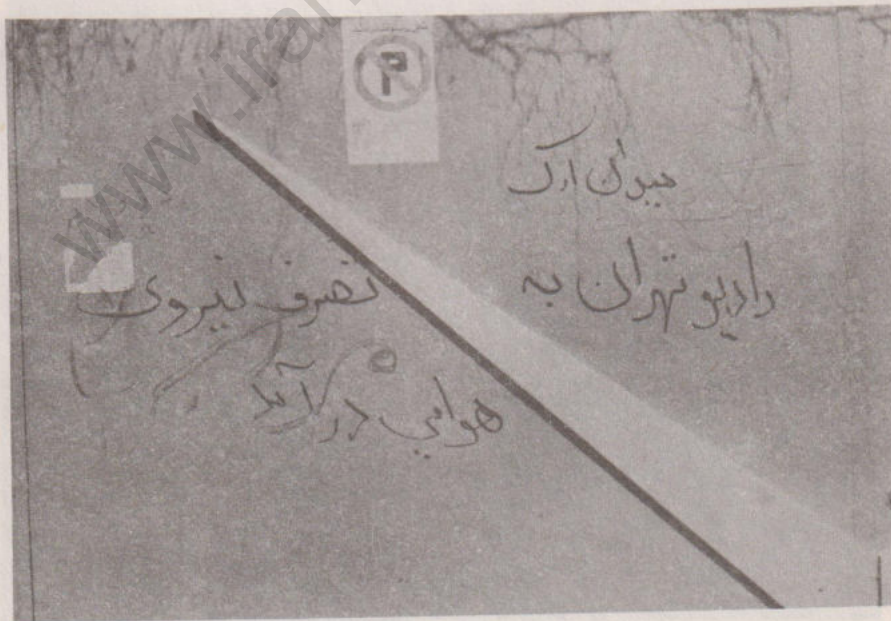 میدان ارک
رادیو تهران به
تصرف نیروی
هوایی درآمد
www.iran
P